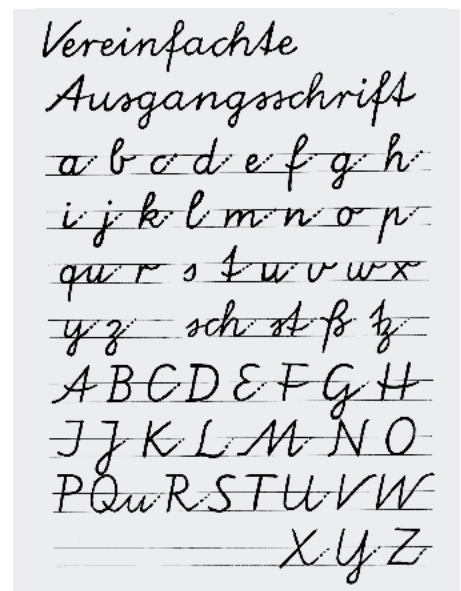 Vereinfachte
Ausgangsschrift
a b c d e f g h
i j k l m n o p
qu r s t u v w x
y z sch st ß tz
A B C D E F G H
I J K L M N O
P Qu R S T U V W
X Y Z